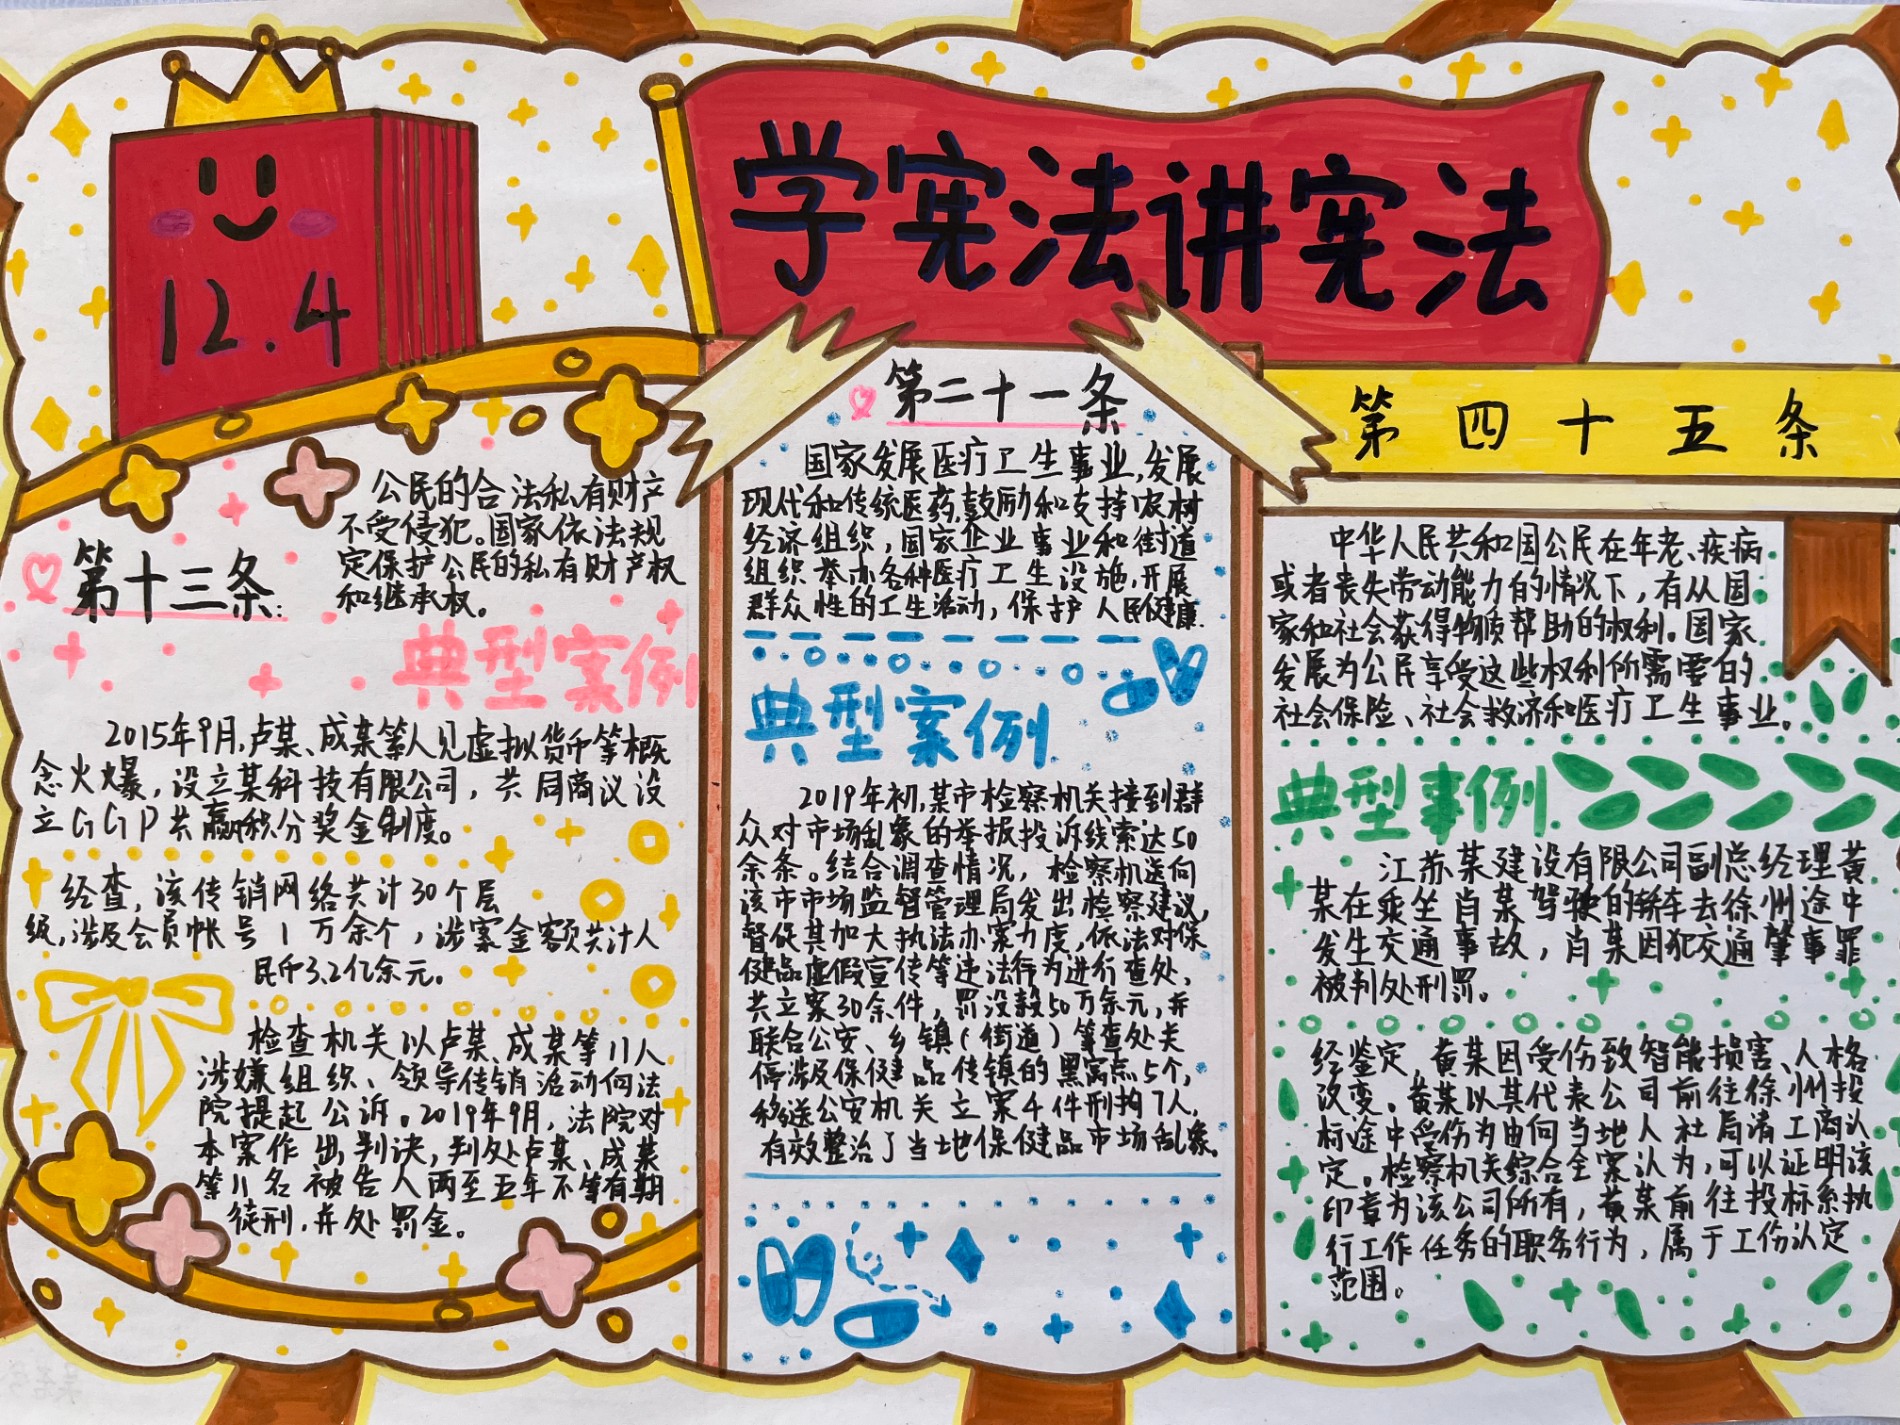 学宪法讲宪法
12.4
第十三条:
公民的合法私有财产
不受侵犯。国家依法规
定保护公民的私有财产权
和继承权。
典型案例
2015年9月,卢某、成某等人见虚拟货币等概
念火爆,设立某科技有限公司,共同商议设
立GGP共赢积分奖金制度。
经查,该传销网络共计30个层
级,涉及会员帐号1万余个,涉案金额共计人
民币3.2亿余元。
检查机关以卢某、成某等11人
涉嫌组织、领导传销活动向法
院提起公诉。2019年9月,法院对
本案作出判决,判处卢某、成某
等11名被告人两至五年不等有期
徒刑,并处罚金。
第二十一条
国家发展医疗卫生事业,发展
现代和传统医药,鼓励和支持农村
经济组织,国家企业事业和街道
组织举办各种医疗卫生设施,开展
群众性的卫生活动,保护人民健康.
典型案例.
2019年初,某市检察机关接到群
众对市场乱象的举报投诉线索达50
余条。结合调查情况,检察机关向
该市市场监督管理局发出检察建议,
督促其加大执法办案力度,依法对保
健品虚假宣传等违法行为进行查处,
共立案30余件,罚没款50万余元,并
联合公安、乡镇(街道)等查处关
停涉及保健品传销的黑窝点5个,
移送公安机关立案4件刑拘7人,
有效整治了当地保健品市场乱象。
第四十五条
中华人民共和国公民在年老、疾病
或者丧失劳动能力的情况下,有从国
家和社会获得物质帮助的权利。国家
发展为公民享受这些权利所需要的
社会保险、社会救济和医疗卫生事业。
典型事例.
江苏某建设有限公司副总经理黄
某在乘坐肖某驾驶的轿车去徐州途中
发生交通事故,肖某因犯交通肇事罪
被判处刑罚。
经鉴定,黄某因受伤致智能损害、人格
改变。黄某以其代表公司前往徐州投
标途中受伤为由向当地人社局请工商认
定。检察机关综合全案认为,可以证明该
印章为该公司所有,黄某前往投标系执
行工作任务的职务行为,属于工伤认定
范围。